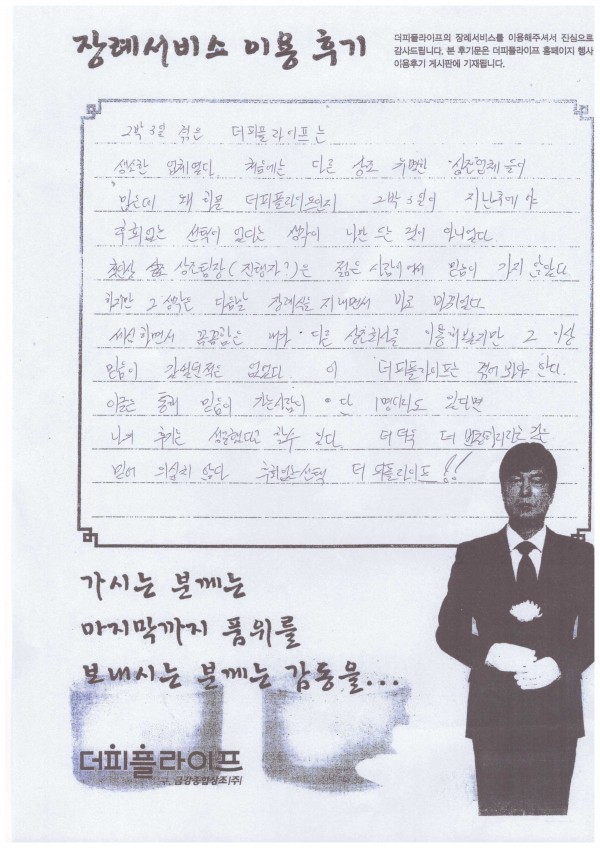 장례서비스 이용 후기
더피플라이프의 장례서비스를 이용해주셔서 진심으로
감사드립니다. 본 후기문은 더피플라이프 홈페이지 행사
이용후기 게시판에 기재됩니다.
2박 3일 겪은 더피플라이프는
생소한 업체였다. 처음에는 다른 상조 유명한 상조업체들이
많은데 왜 하필 더피플라이프인지 2박 3일이 지난후에야
후회없는 선택이 었다는 생각이 나만 든 것이 아니었다.
상조팀장(진행자?)은 젊은 사람이여서 믿음이 가지 않았다
하지만 그 생각은 다음날 장례식을 지내면서 바로 바뀌었다
세심하면서 꼼꼼함은 내가 다른 상조회사를 이용해보았지만 그 이상
믿음이 갔었던적은 없었다 이 더피플라이프는 겪어 봐야 한다.
이글을 통해 믿음이 가는사람이 단 1명이라도 있다면
나의 후기는 성공했다고 할수 있다. 더더욱 더
믿어 의심치 않다 후회없는선택 더 피플라이프!!
가시는 분께는
마지막까지 품위를
보내시는 분께는 감동을...
더피플라이프
구. 금강종합상조(주)